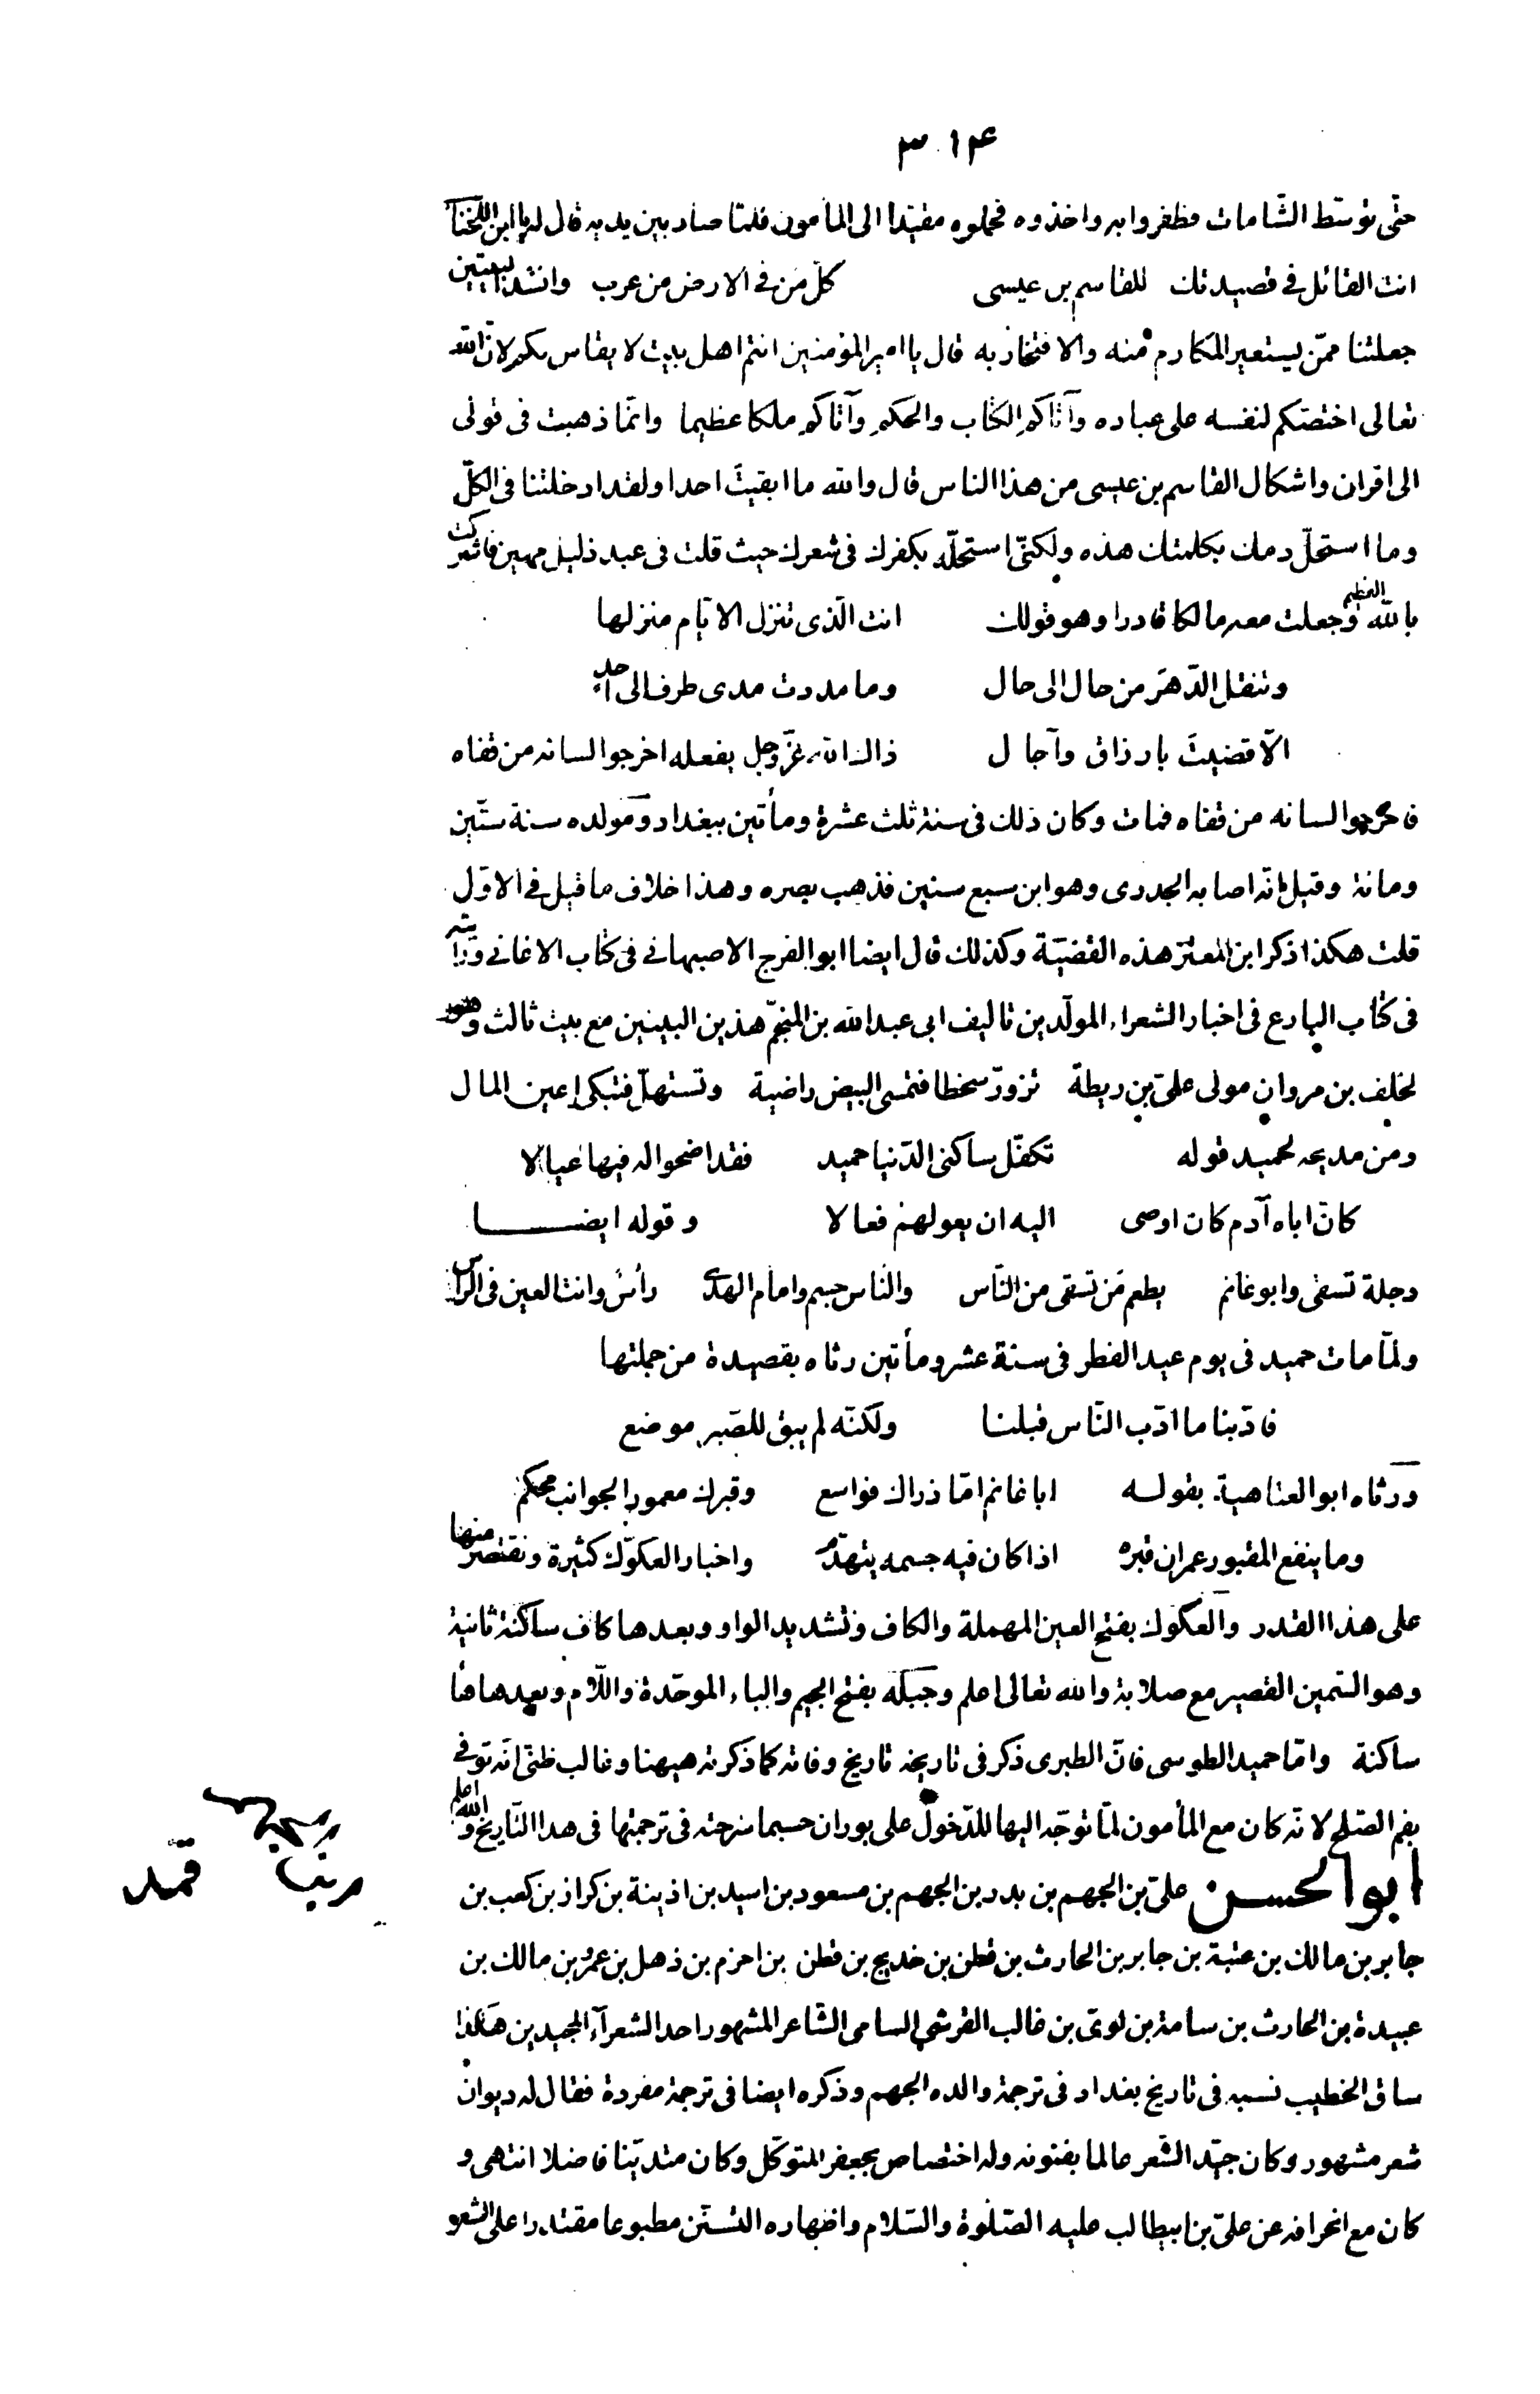 ٣١٤
حتّى توسّط الشّامات فظفروا به واخذوه فحملوه مقيّدا الى المأمون فلمّا صار بين يديه قال له يا ابن اللّخناء
انت القائل فى قصيدتك للقاسم بن عيسى كلّ من فى الارض من عرب وانشد البيتين
جعلتنا ممّن يستعير المكارم منه والافتخار به قال يا امير المؤمنين انتم اهل بيت لا يقاس بكم لانّ اللّه
تعالى اختصّكم لنفسه على عباده وآتاكم الكتاب والحكم وآتاكم ملكا عظيما وانّما ذهبت فى قولى
الى اقران واشكال القاسم بن عيسى من هذا الناس قال والله ما ابقيت احدا ولقد ادخلتنا فى الكلّ
وما استحلّ دمك بكلمتك هذه ولكنّى استحلّه بكفرك فى شعرك حيث قلت فى عبد ذليل مهين فاشركت
بالله العظيم وجعلت معه مالكا قادرا وهو قولك انت الّذى تنزل الايّام منزلها
وتنقل الدّهر من حال الى حال وما مددت مدى طرف الى احد
الّا قضيت بارزاق وآجال ذاك الله عزّ وجل يفعله اخرجوا لسانه من قفاه
فاخرجوا لسانه من قفاه فمات وكان ذلك فى سنة ثلث عشرة ومأتين ببغداد ومولده سنة ستّين
ومائة وقيل انّه اصابه الجدرى وهو ابن سبع سنين فذهب بصره وهذا خلاف ما قيل فى الاوّل
قلت هكذا ذكر ابن المعتزّ هذه القضيّة وكذلك قال ايضا ابو الفرج الاصبهانى فى كتاب الاغانى ورأيت
فى كتاب البارع فى اخبار الشعراء المولّدين تاليف ابى عبد الله بن المنجّم هذين البيتين مع بيت ثالث وهو
لخلف بن مروان مولى علىّ بن ريطة تزورّ سخطا فتمسى البيض راضية وتستهلّ فتبكى اعين المال
ومن مديحه لحميد قوله تكفّل ساكنى الدّنيا حميد فقد اضحوا له فيها عيالا
كانّ اباه آدم كان اوصى اليه ان يعولهم فعالا وقوله ايضا
دجلة تسقى وابو غانم يطعم من تسقى من النّاس والنّاس جسم وامام الهدى رأس وانت العين فى الرّاس
ولمّا مات حميد فى يوم عيد الفطر فى سنة عشر ومأتين رثاه بقصيدة من جملتها
فادّبنا ما ادّب النّاس قبلنا ولكنّه لم يبق للصّبر موضع
ورثاه ابو العتاهية بقوله ابا غانم امّا ذراك فواسع وقبرك معمور الجوانب محكم
وما ينفع المقبور عمران قبره اذا كان فيه جسمه يتهدّم واخبار العكوّك كثيرة ونقتصر منها
على هذا القدر والعكوّك بفتح العين المهملة والكاف وتشديد الواو وبعدها كاف ساكنة ثانية
وهو السّمين القصير مع صلابة والله تعالى اعلم وجبلة بفتح الجيم والباء الموحّدة واللّام وبعدها هاء
ساكنة وامّا حميد الطوسى فانّ الطبرى ذكر فى تاريخه تاريخ وفاته كما ذكرته هيهنا وغالب ظنّى انّه توفى
بفم الصّلح لانّه كان مع المأمون لمّا توجّه اليها للدّخول على بوران حسبما شرحته فى ترجمتها فى هذا التّاريخ والله اعلم
ابو الحسن علىّ بن الجهم بن بدر بن الجهم بن مسعود بن اسيد بن اذينة بن كراز بن كعب بن
جابر بن مالك بن عتبة بن جابر بن الحارث بن قطن بن خديج بن قطن بن احزم بن ذهل بن عمرو بن مالك بن
عبيدة بن الحارث بن سامة بن لوىّ بن غالب القرشى السامى الشّاعر المشهور احد الشعرآء المجيدين هكذا
ساق الخطيب نسبه فى تاريخ بغداد فى ترجمة والده الجهم وذكره ايضا فى ترجمة مفردة فقال له ديوان
شعر مشهور وكان جيّد الشّعر عالما بفنونه وله اختصاص بجعفر المتوكّل وكان متديّنا فاضلا انتهى و
كان مع انحرافه عن علىّ بن ابيطالب عليه الصّلوة والسّلام واظهاره التّسنّن مطبوعا مقتدرا على الشعر